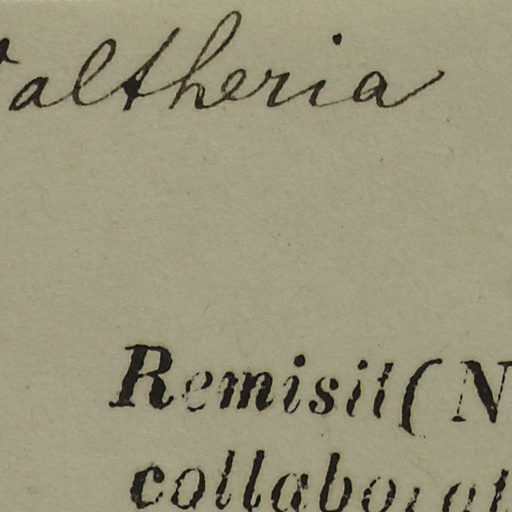 altheria
Remisit (N
collaborat